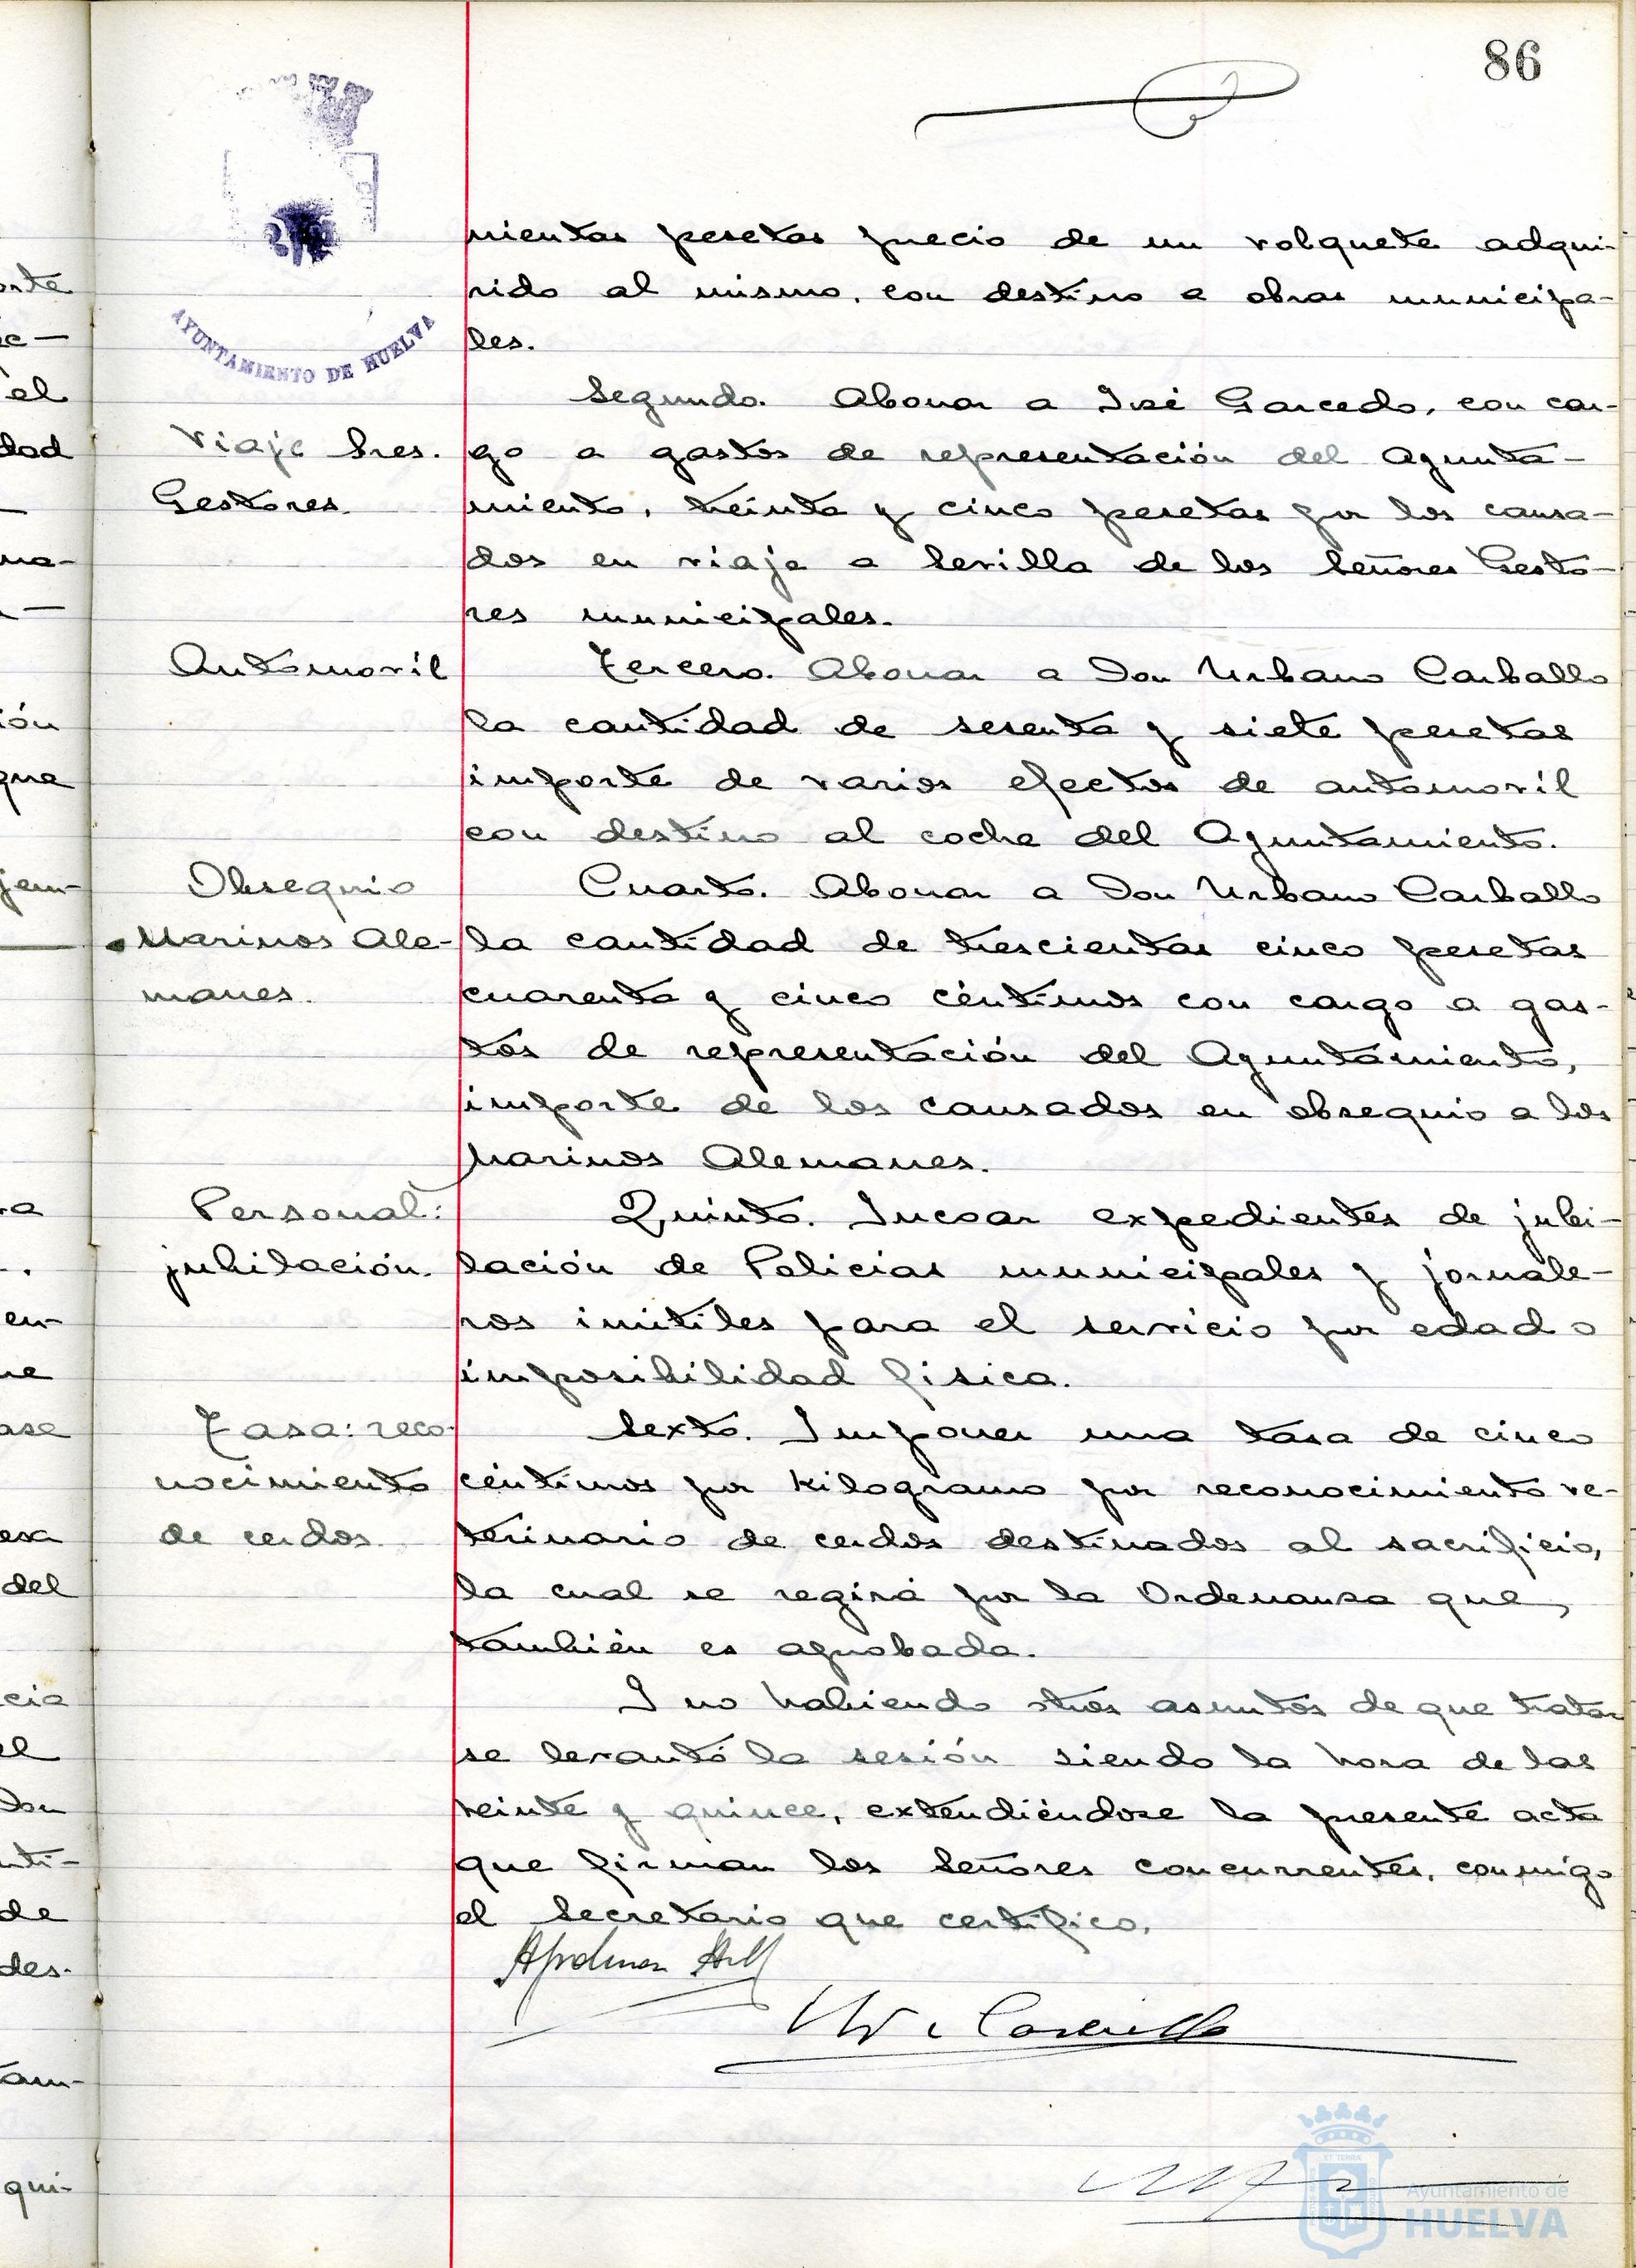 86
AYUNTAMIENTO DE HUELVA
nientas pesetas precio de un volquete adqui-
rido al mismo, con destino a obras municipa-
les.
Viaje Sres.
Gestores.
Segundo. Abonar a José Garcedo, con car-
go a gastos de representación del Ayunta-
miento, treinta y cinco pesetas por los causa-
dos en viaje a Sevilla de los Señores Gesto-
res municipales.
Automovil
Tercero. Abonar a Don Urbano Carballo
la cantidad de sesenta y siete pesetas
importe de varios efectos de automovil
con destino al coche del Ayuntamiento.
Obsequio
Marinos Ale-
manes.
Cuarto. Abonar a Don Urbano Carballo
la cantidad de trescientas cinco pesetas
cuarenta y cinco céntimos con cargo a gas-
tos de representación del Ayuntamiento,
importe de los causados en obsequio a los
Marinos Alemanes.
Personal:
jubilación.
Quinto. Incoar expedientes de jubi-
lación de Policias municipales y jornale-
ros inútiles para el servicio por edad o
imposibilidad fisica.
Tasa: reco-
nocimiento
de cerdos.
Sexto. Imponer una tasa de cinco
céntimos por kilogramo por reconocimiento ve-
terinario de cerdos destinados al sacrificio,
la cual se regirá por la Ordenanza que,
también es aprobada.
I no habiendo otros asuntos de que tratar
se levantó la sesión siendo la hora de las
veinte y quince, extendiéndose la presente acta
que firman los Señores concurrentes, conmigo
el Secretario que certifico.
Ayuntamiento de
HUELVA